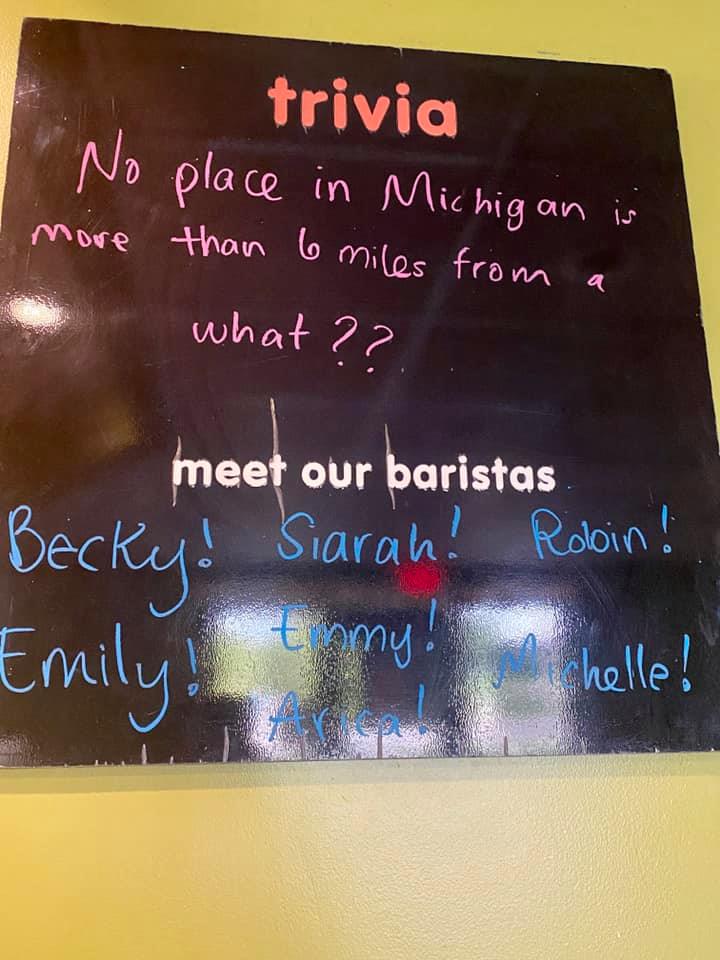 trivia
No place in Michigan is
more than 6 miles from a
what ??
meet our baristas
Becky! Siarah! Robin!
Emily! Emmy! Michelle!
Arica!